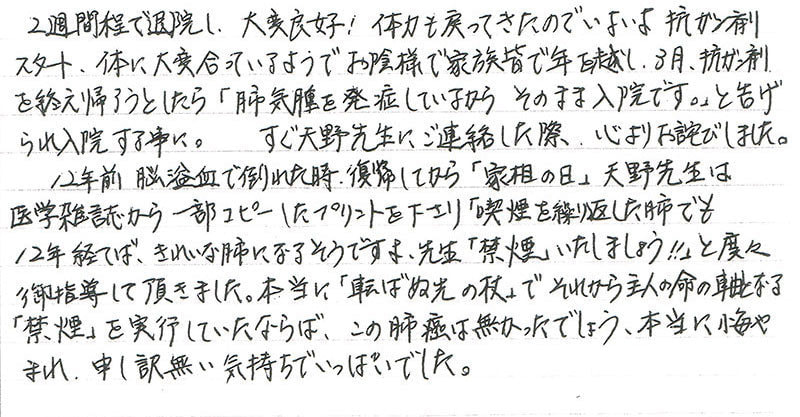 2週間程で退院し、大変良好！体力も戻ってきたのでいよいよ抗ガン剤
スタート、体に大変合っているようでお陰様で家族皆で年を越し、3月、抗ガン剤
を終え帰ろうとしたら「肺気腫を発症しているから そのまま入院です。」と告げ
られ入院する事に。 すぐ天野先生にご連絡した際、心よりお詫びしました。
12年前 脳溢血で倒れた時、復帰してから「家相の日」天野先生は
医学雑誌から一部コピーしたプリントを下さり「喫煙を繰り返した肺でも
12年経てば、きれいな肺になるそうですよ、先生「禁煙」いたしましょう!!」と度々
御指導して頂きました。本当に「転ばぬ先の杖」で それから主人の命の軸となる
「禁煙」を実行していたならば、この肺癌は無かったでしょう、本当に悔や
まれ、申し訳無い気持ちでいっぱいでした。